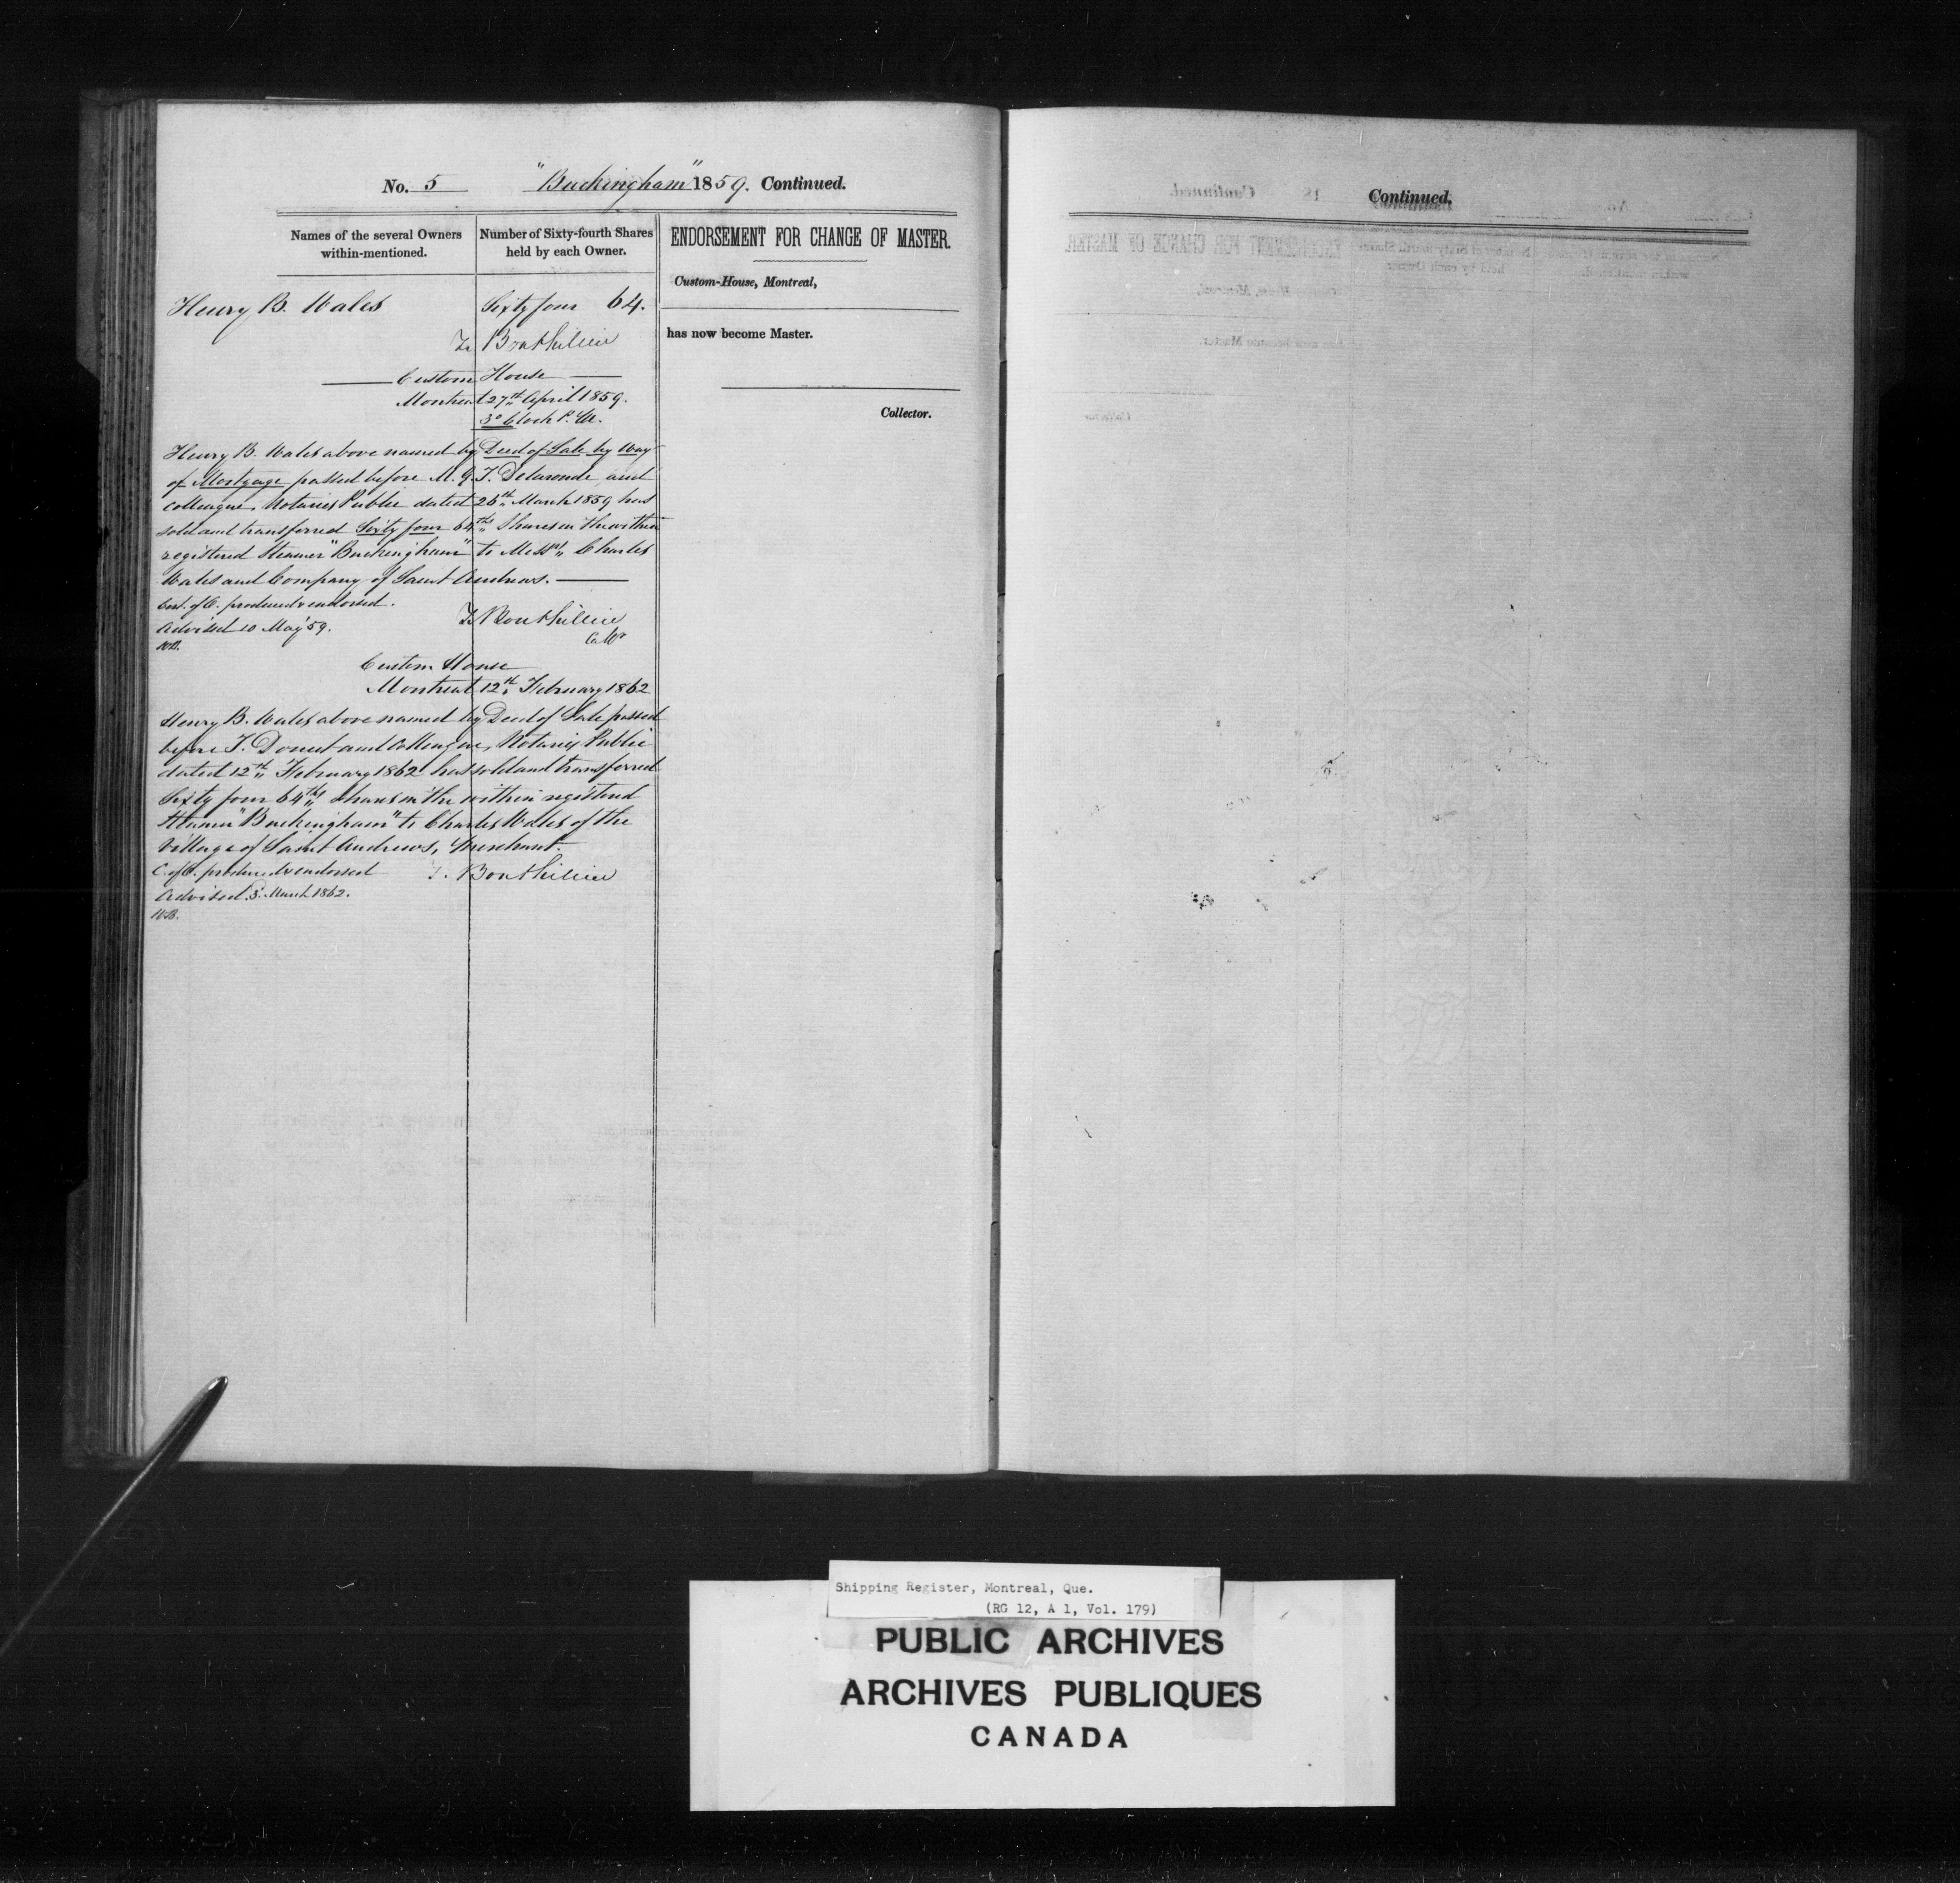 No. 5 "Buckingham" 1859. Continued.
Names of the several Owners within-mentioned.
Number of Sixty-fourth Shares held by each Owner.
ENDORSEMENT FOR CHANGE OF MASTER.
Custom-House, Montreal,
has now become Master.
Collector.
Henry B. Wales Sixty four 64.
Bouthillier
Custom House
Montreal 27th April 1859.
3 o'Clock P.M.
Henry B. Wales above named by Deed of Sale by Way
of Mortgage passed before M. G. J. Delaronde and
colleague, Notaries Public dated 26th March 1859 has
sold and transferred Sixty four 64ths Shares in the within
registered Steamer "Buckingham" to Messrs Charles
Wales and Company of Saint Andrews.
Cert. of O. produced & endorsed.
Advised 10 May '59.
Bouthillier
Collr
Custom House
Montreal 12th February 1862
Henry B. Wales above named by Deed of Sale passed
before J. and Colleague, Notaries Public
dated 12th February 1862 has sold and transferred
Sixty four 64ths shares in the within registered
Steamer "Buckingham" to Charles Wales of the
Village of Saint Andrews, Merchant.
C. of O. produced & endorsed T. Bouthillier
Advised 3. March 1862.
WB.
Continued.
Shipping Register, Montreal, Que.
(RG 12, A 1, Vol. 179)
PUBLIC ARCHIVES
ARCHIVES PUBLIQUES
CANADA